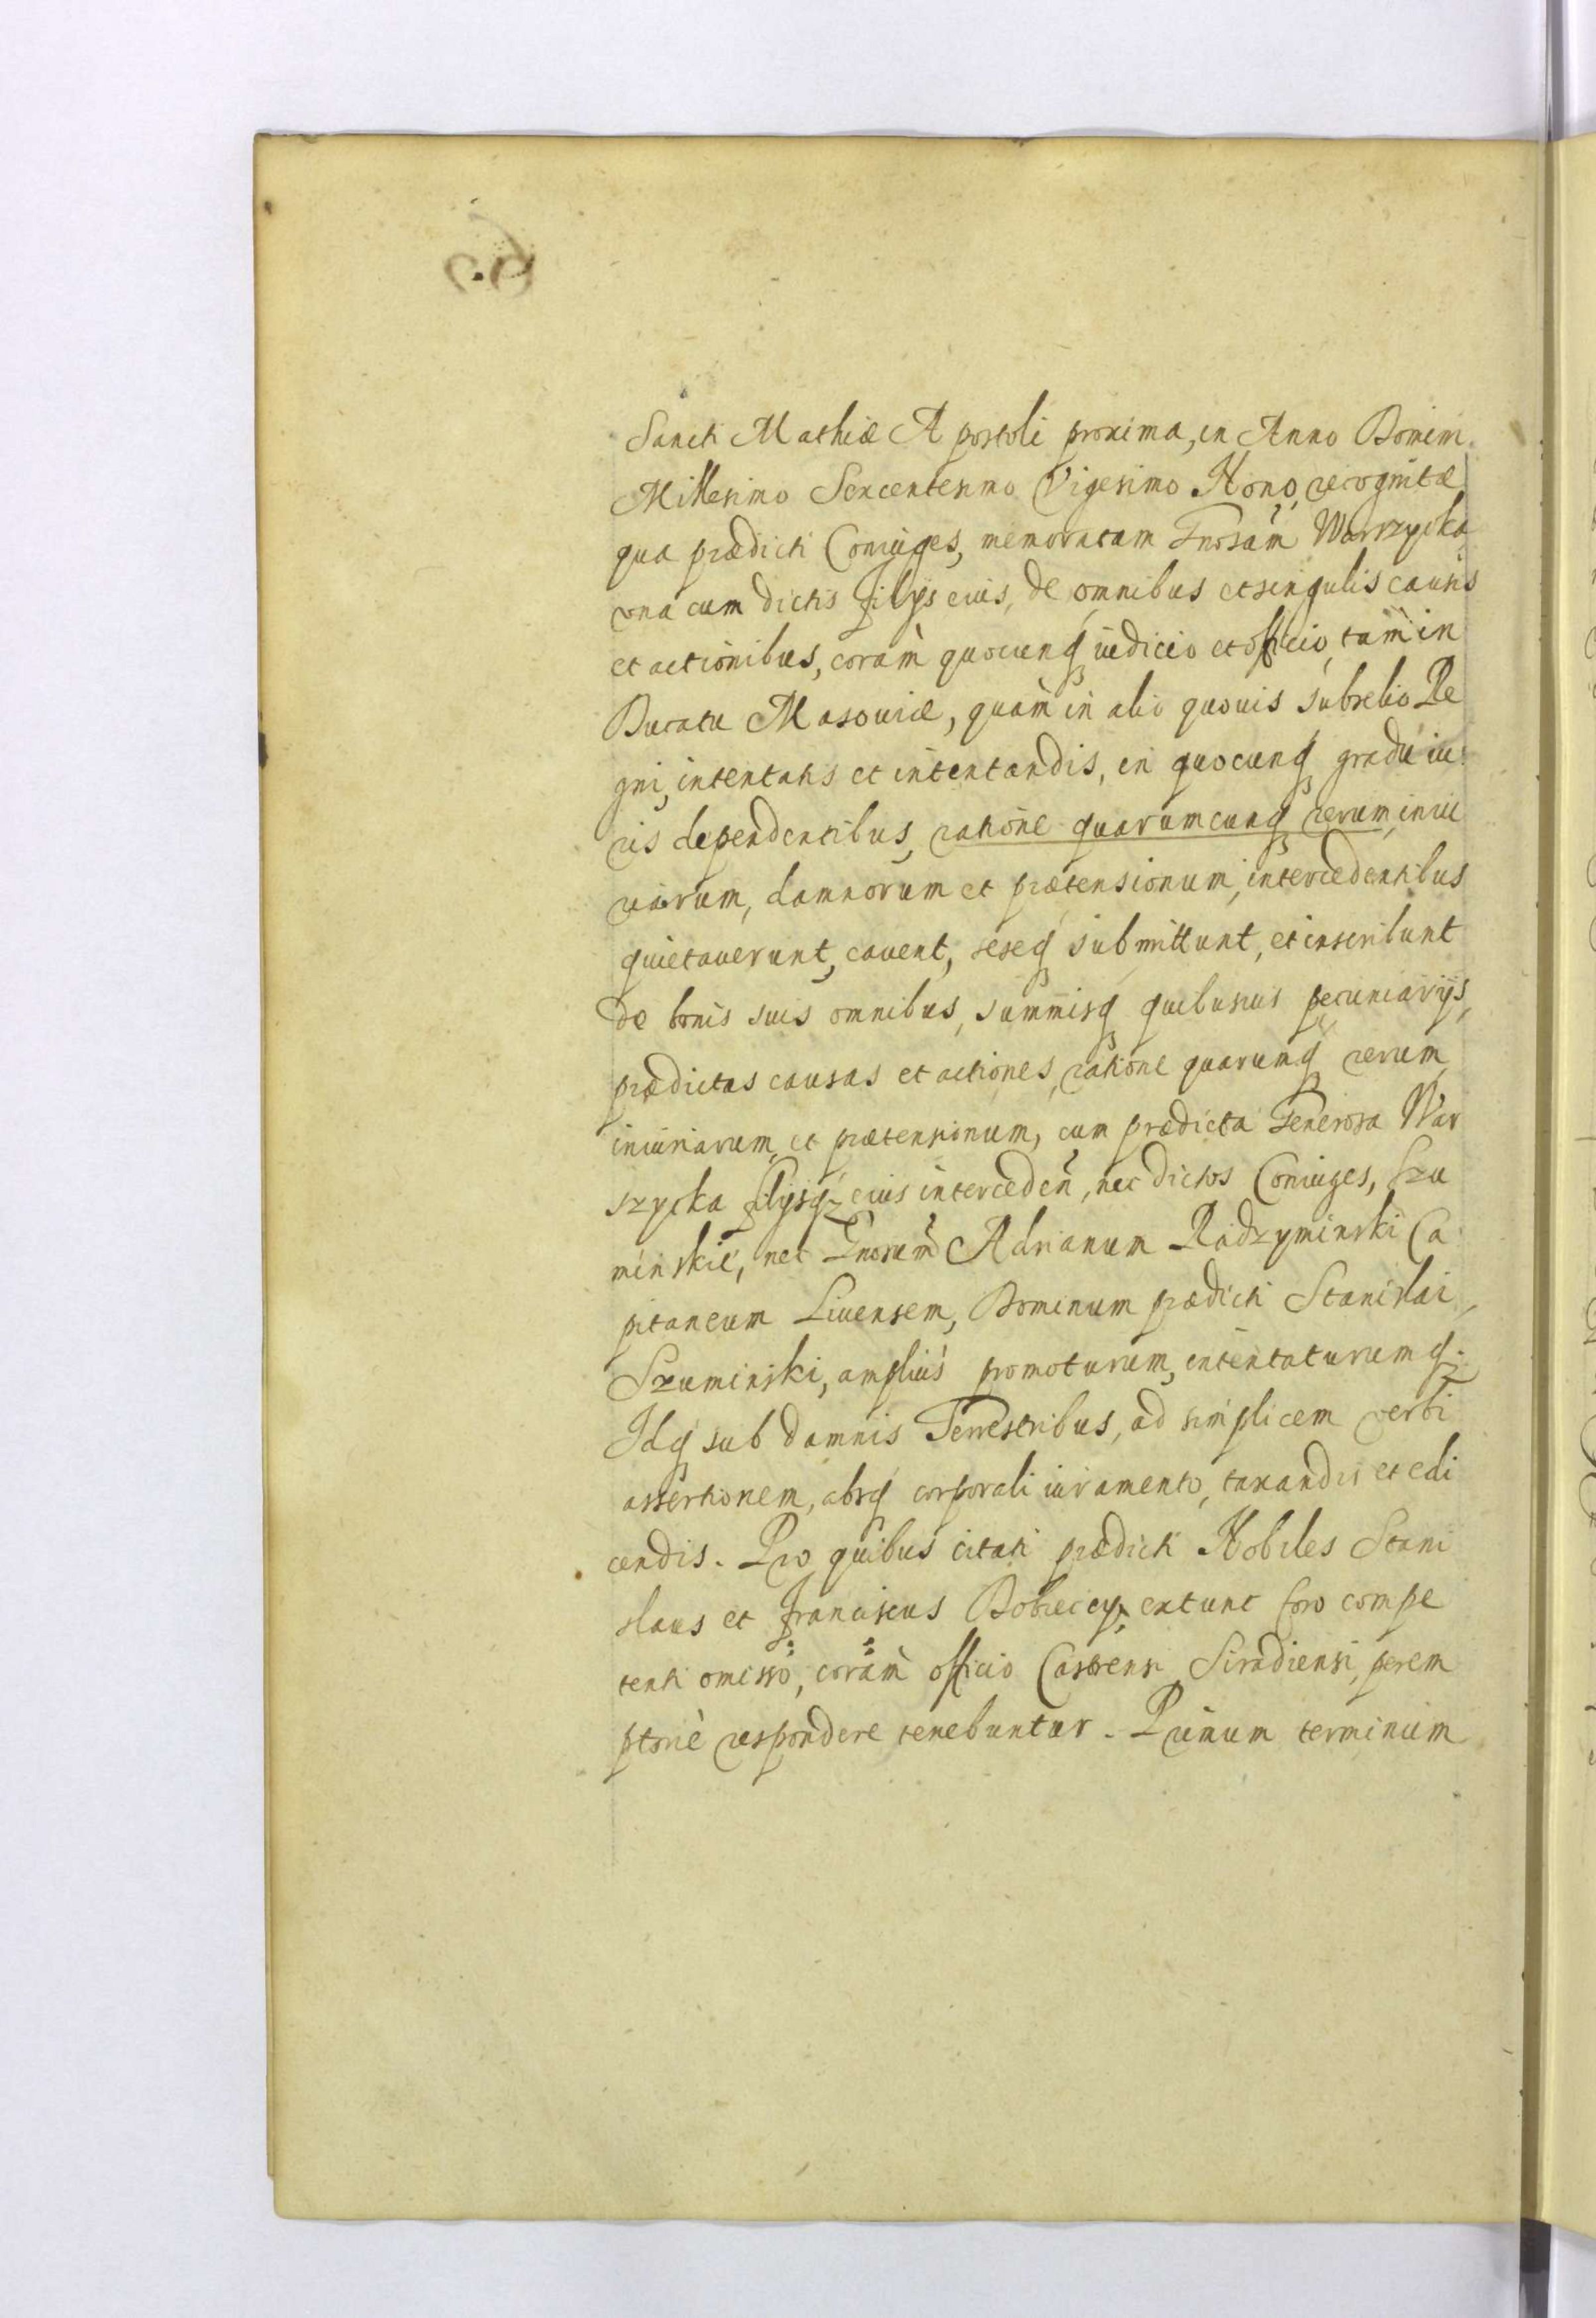 Sancti Mathiæ Apostoli proxima, in Anno Domini
Millesimo Sexcentesimo Vigesimo Nono, recognitæ
qua prædicti Coniuges, memoratam Gnosam Warszycka
vna cum dictis filijs eius, de omnibus et singulis causis
et actionibus, coràm quocunq iudicio et officio, tam in
Ducatu Masouiæ, quàm in alio quouis subselio Re
gni, intentatis et intentandis, in quocunq gradu iu:
ris dependentibus, ratione quarumcunq rerum, iniu
riarum, damnorum et prætensionum, intercedentibus
quietauerunt, cauent, seseq submittunt, et inscribunt
de bonis suis omnibus, summisq quibusuis pecuniarijs,
prædictas causas et actiones, ratione quarumq rerum
iniuriarum, et prætensionum, cum prædicta Generosa War
szycka filijsq eius interceden, nec dictos Coniuges, Szu
minskie, nec Gnosum Adrianum Radzyminski Ca
pitaneum Liuensem, Dominum prædicti Stanislai
Szuminski, ampliùs promoturum, intentaturumq.
Idq sub damnis Terrestribus, ad simplicem verbi
assertionem, absq corporali iuramento, taxandis et edi
cendis. Pro quibus citati prædicti Nobiles Stani
slaus et Franciscus Bobieccy, extunc foro compe
tenti omisso, coràm officio Castrensi Siradiensi, perem
ptoriè respondere tenebuntur. Primum terminum